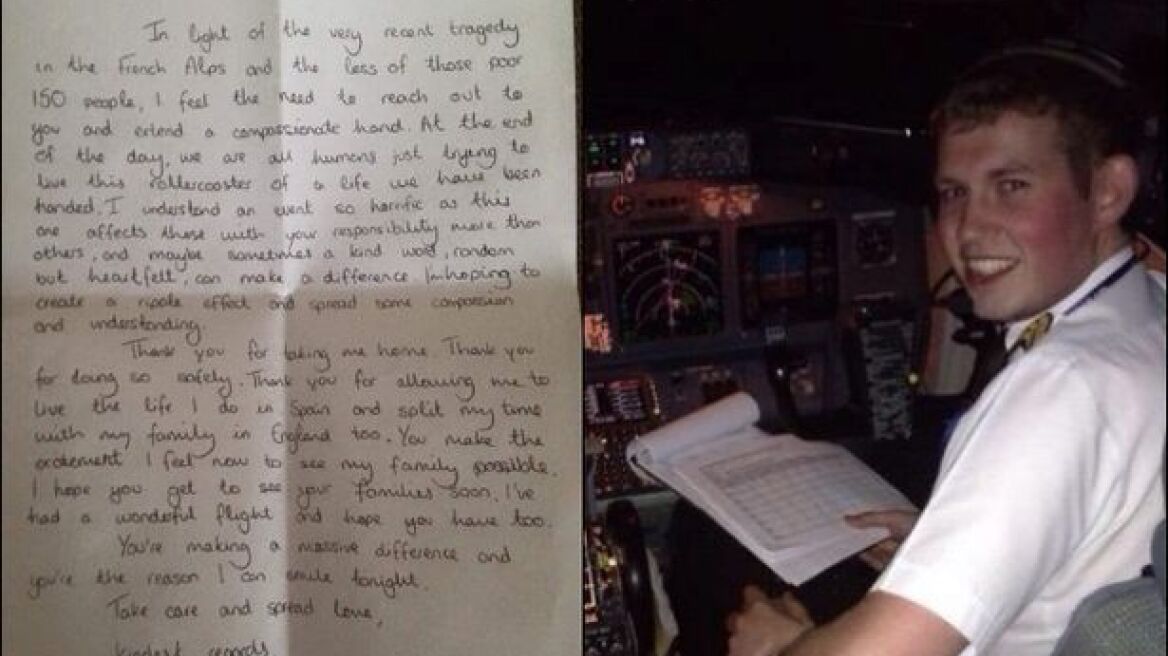 In light of the very recent tragedy
in the French Alps and the loss of those poor
150 people, I feel the need to reach out to
you and extend a compassionate hand. At the end
of the day, we are all humans just trying to
live this rollercoaster of a life we have been
handed. I understand an event so horrific as this
one affects those with your responsibility more than
others, and maybe sometimes a kind word, random
but heartfelt, can make a difference. I'm hoping to
create a ripple effect and spread some compassion
and understanding.
Thank you for taking me home. Thank you
for doing so safely. Thank you for allowing me to
live the life I do in Spain and split my time
with my family in England too. You make the
excitement I feel now to see my family possible.
I hope you get to see your families soon. I've
had a wonderful flight and hope you have too.
You're making a massive difference and
you're the reason I can smile tonight.
Take care and spread love,
kindest regards